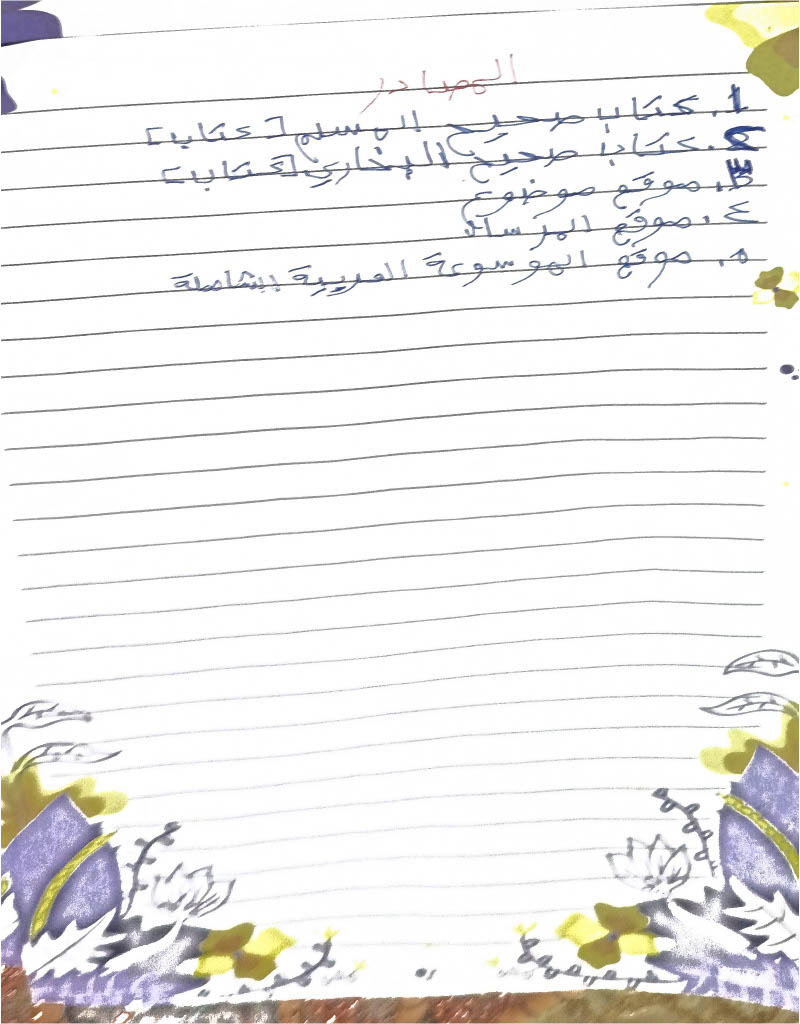 المصادر
1. كتاب صحيح المسلم [كتاب]
2. كتاب صحيح البخاري [كتاب]
٣. موقع موضوع
٤. موقع المرسال
٥. موقع الموسوعة العربية الشاملة